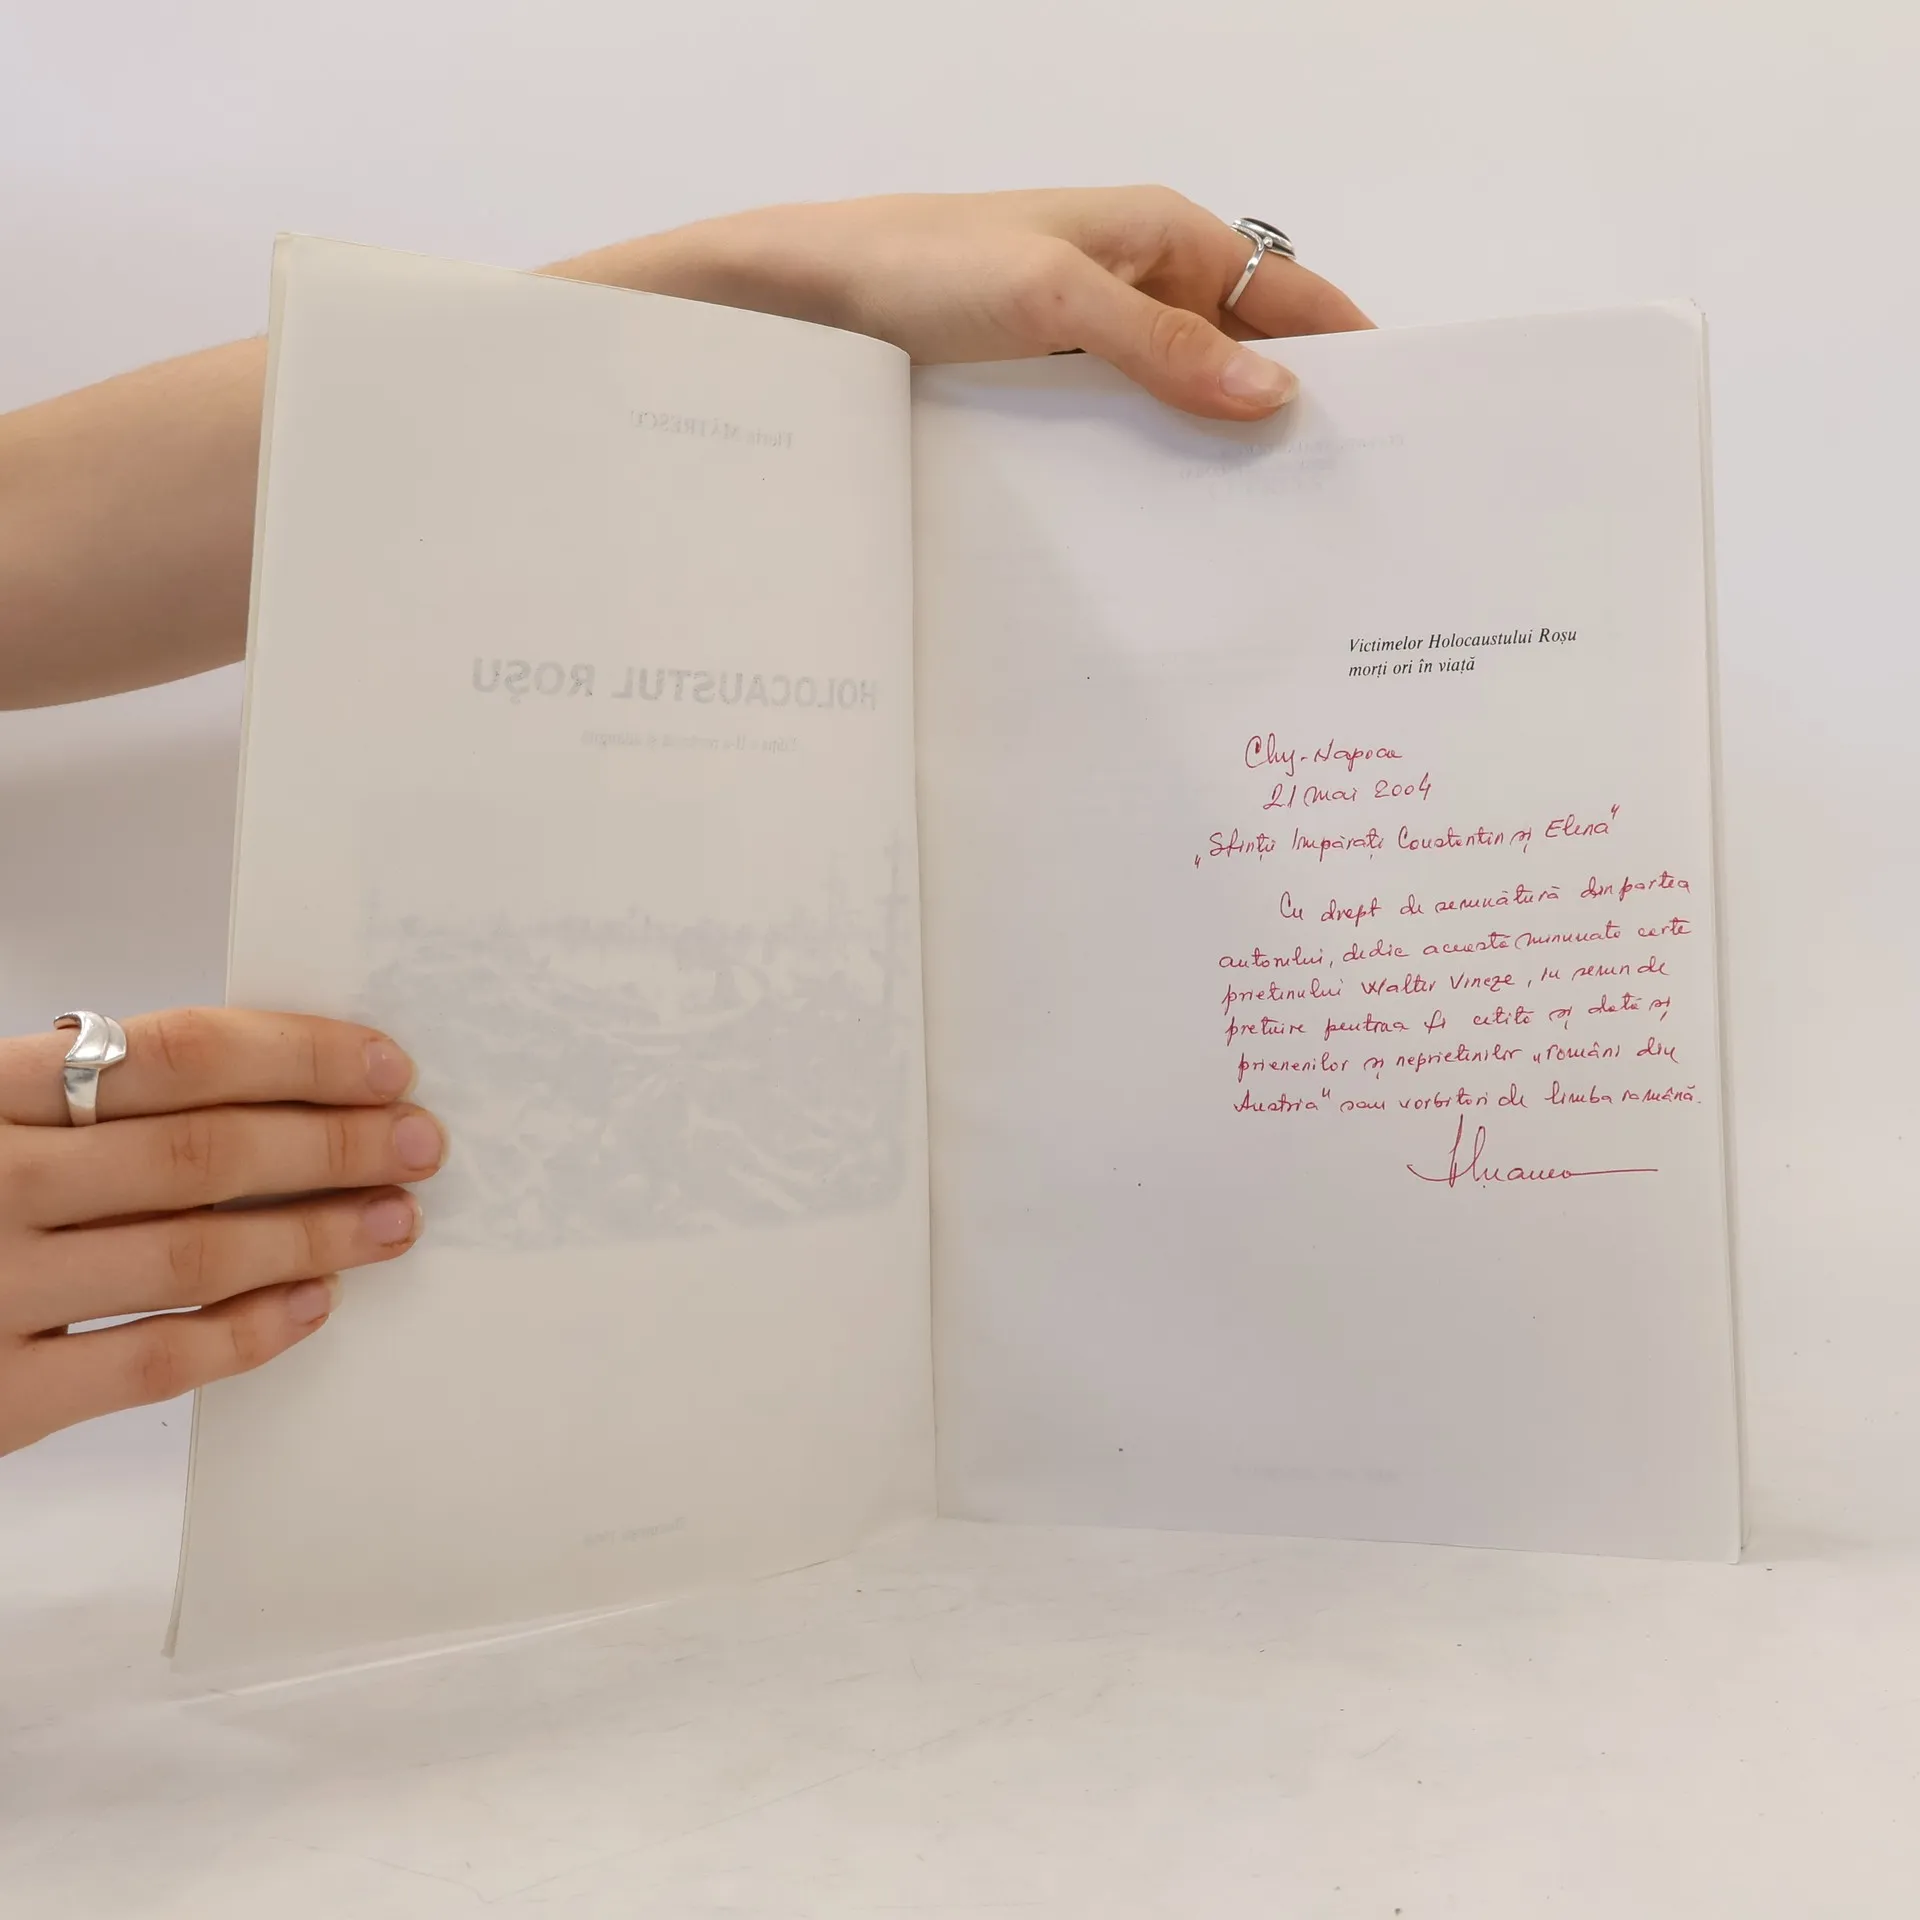 Florin MĂTRESCU
HOLOCAUSTUL ROȘU
Victimelor Holocaustului Roșu
morți ori în viață
Cluj-Napoca
21 Mai 2004
„Sfinții Împărați Constantin și Elena"
Cu drept de semnătură din partea
autorului, dedic această minunată carte
prietenului Walter Vincze, în semn de
prețuire pentru a fi citită și dată și
prienenilor și neprietinilor „români din
Austria" sau vorbitori de limba română.